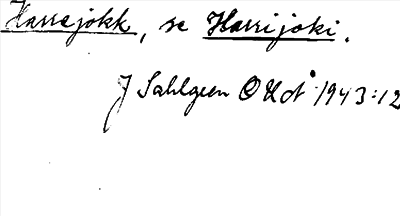 Harrejokk, se Harrijoki.
J Sahlgren OUÅ 1943:12